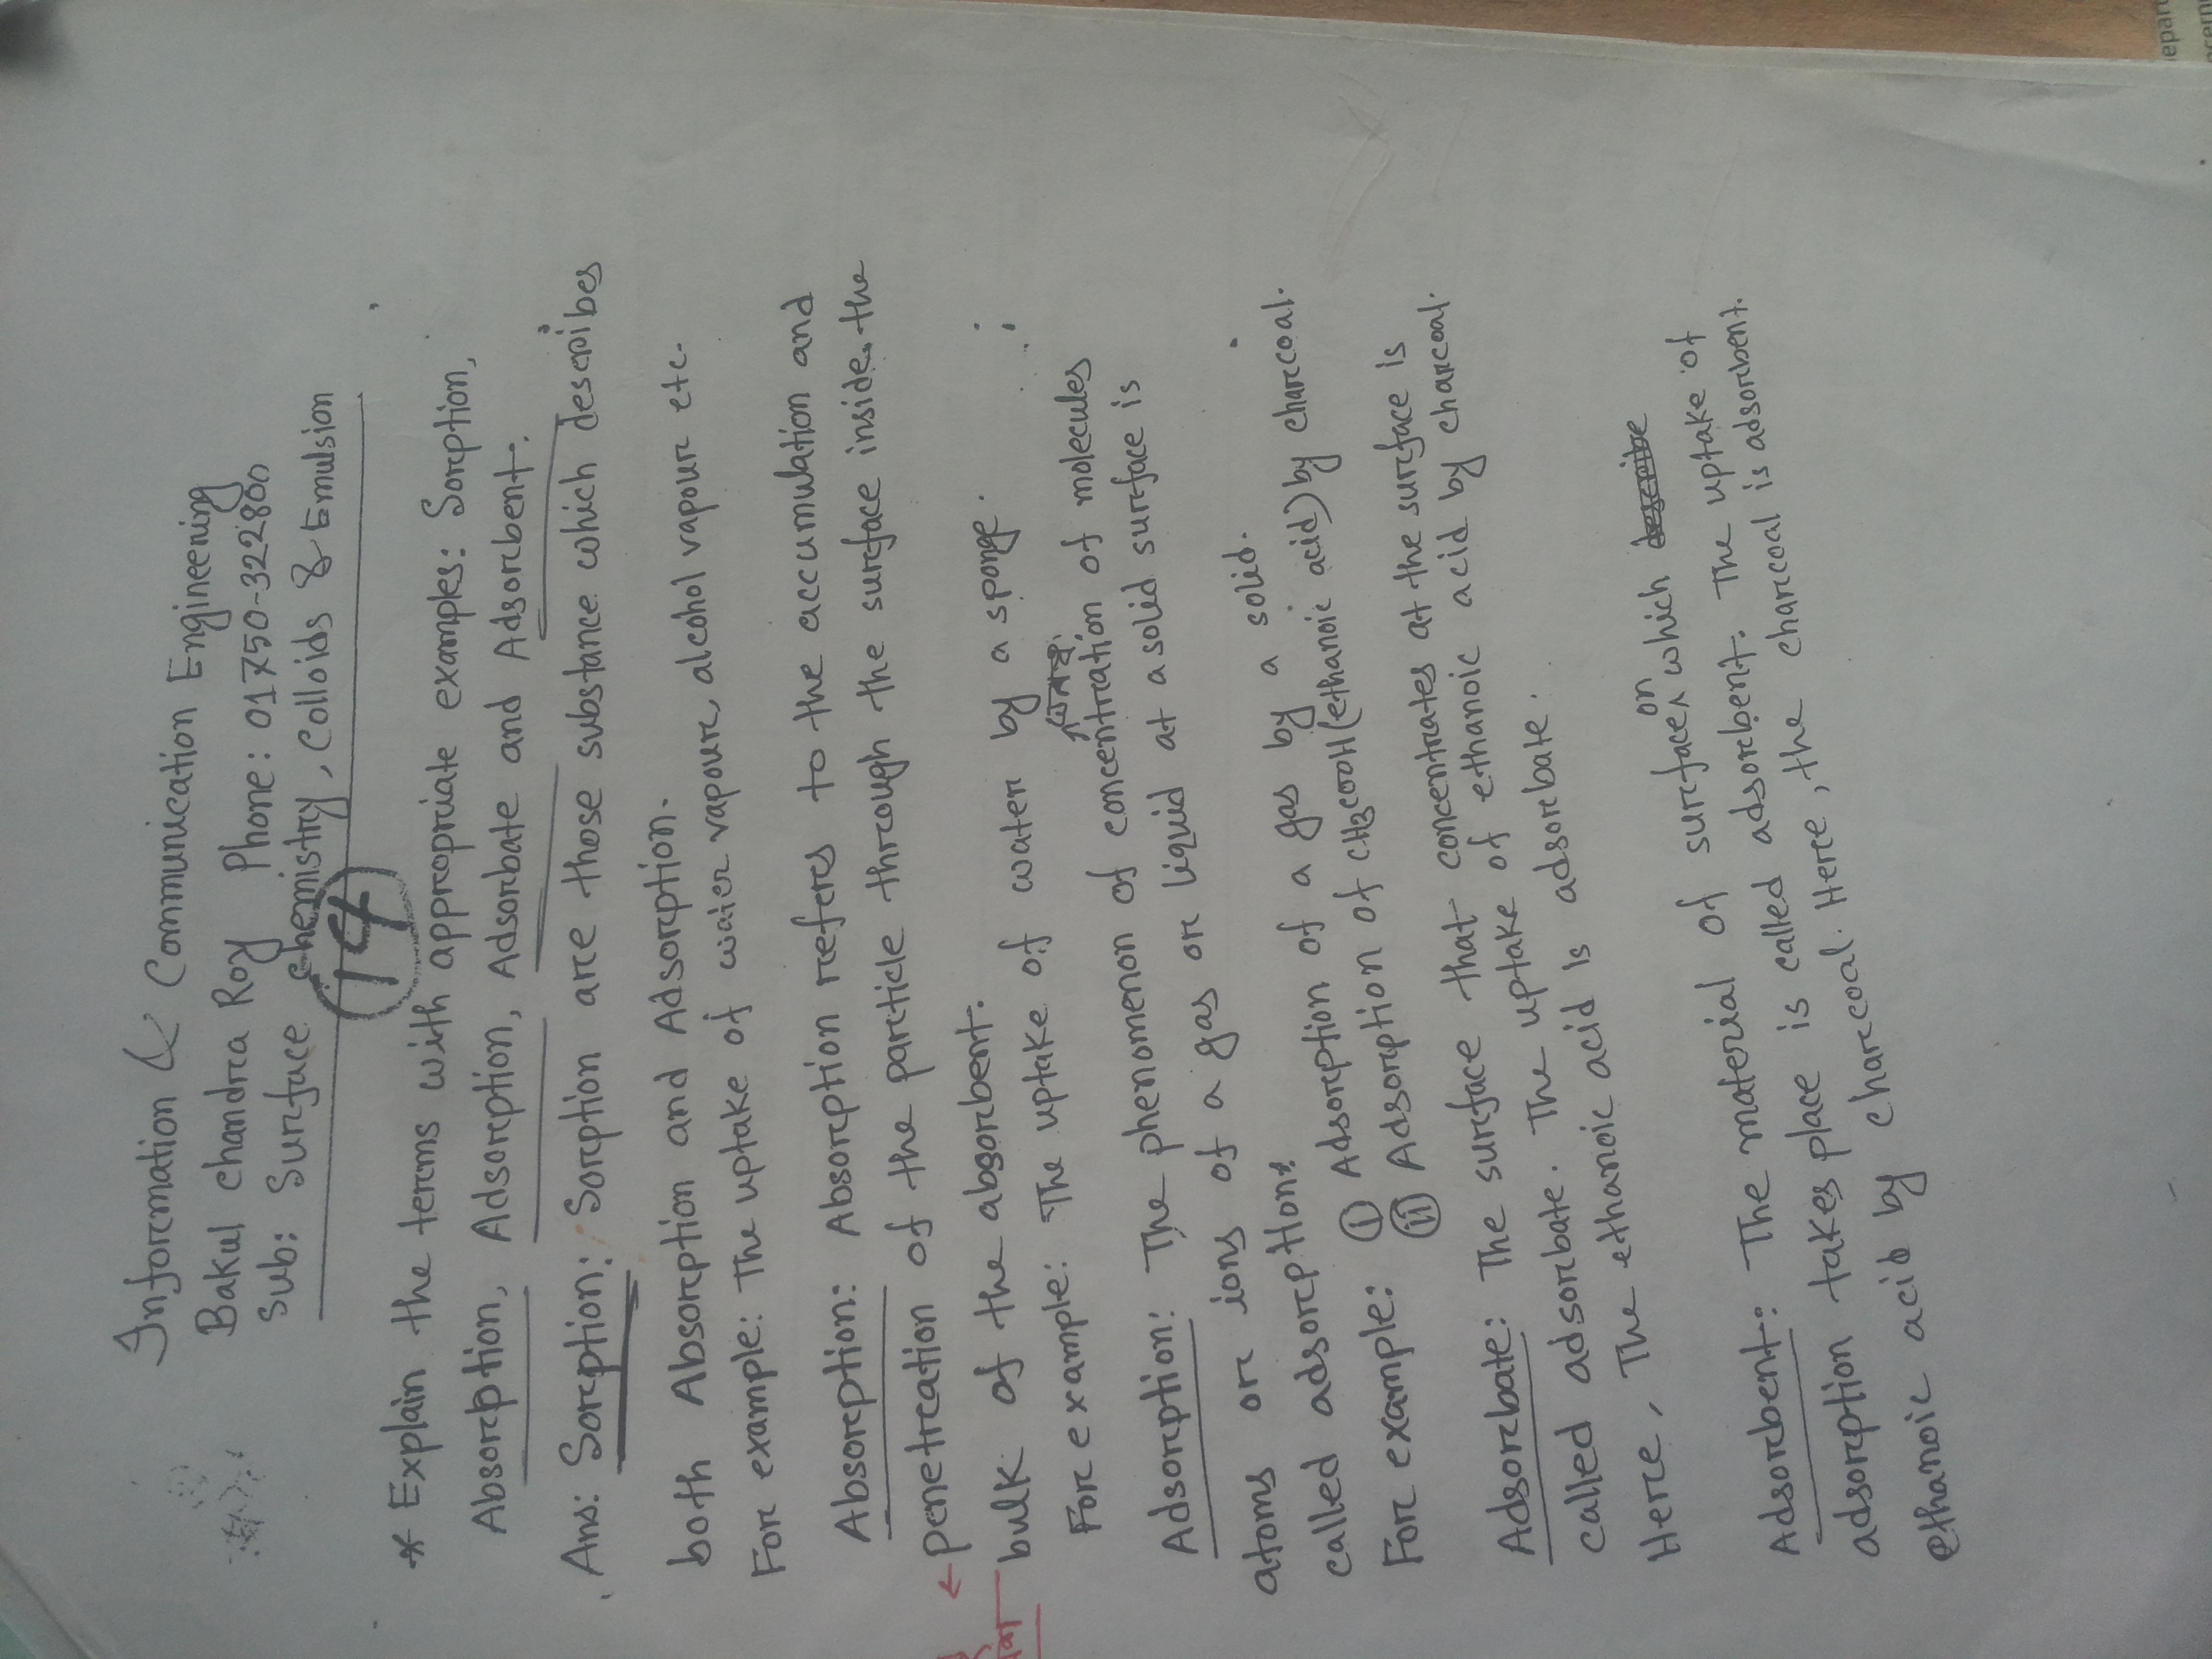 Information & Communication Engineering
Bakul Chandra Roy Phone: 01750-322800
Sub: Surface Chemistry, Colloids & Emulsion
14
* Explain the terms with appropriate examples: Sorption,
Absorption, Adsorption, Adsorbate and Adsorbent.
Ans: Sorption: Sorption are those substance which describes
both Absorption and Adsorption.
For example: The uptake of water vapour, alcohol vapour etc.
Absorption: Absorption refers to the accumulation and
← penetration of the particle through the surface inside the
bulk of the absorbent.
For example: The uptake of water by a sponge.
Adsorption: The phenomenon of concentration of molecules
atoms or ions of a gas or liquid at a solid surface is
called adsorption.
For example: (i) Adsorption of a gas by a solid.
(ii) Adsorption of CH3COOH (ethanoic acid) by charcoal.
Adsorbate: The surface that concentrates at the surface is
called adsorbate. The uptake of ethanoic acid by charcoal.
Here, The ethanoic acid is adsorbate.
Adsorbent: The material of surface on which describe
adsorption takes place is called adsorbent. The uptake of
ethanoic acid by charcoal. Here, the charcoal is adsorbent.
epart